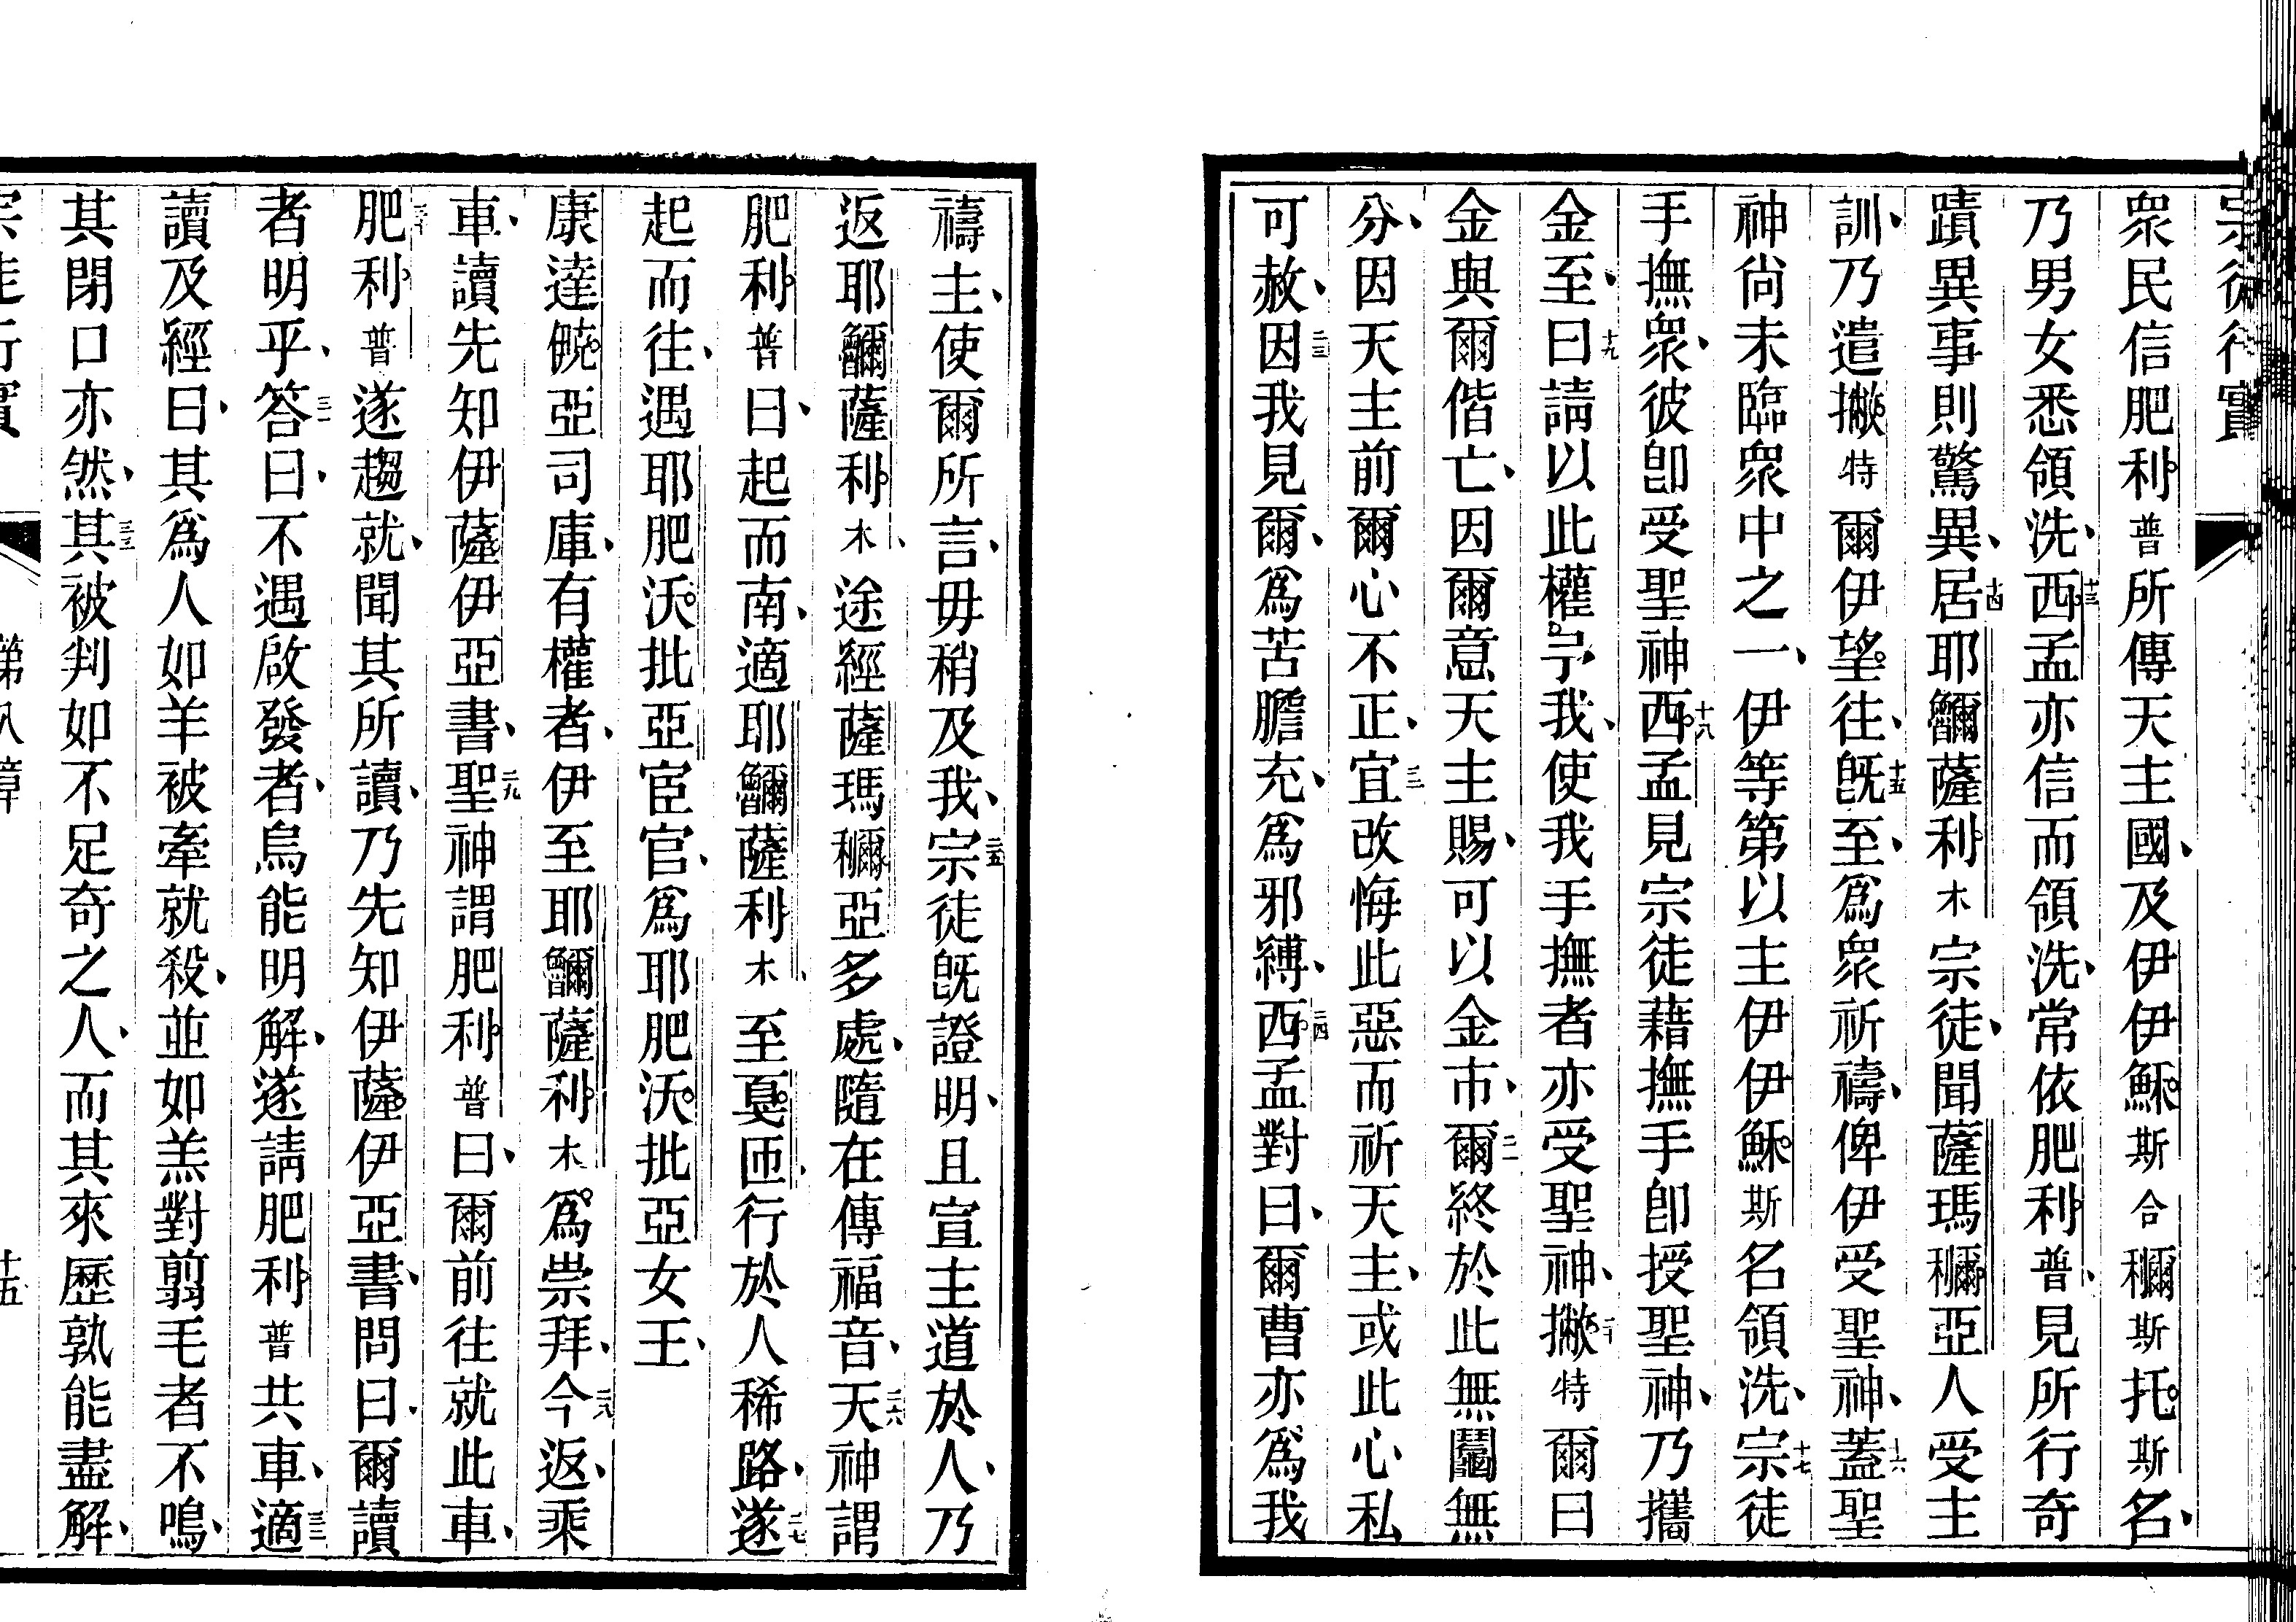 宗徒行實
衆民信肥利普所傳天主國、及伊伊穌斯合穪斯托斯名、
乃男女悉領洗、十三西孟亦信而領洗、常依肥利普、見所行奇
蹟異事則驚異、十四居耶𩆜薩利木宗徒、聞薩瑪穪亞人受主
訓、乃遣撇特爾伊望往、十五旣至、爲衆祈禱、俾伊受聖神、十六蓋聖
神尚未臨衆中之一、伊等第以主伊伊穌斯名領洗、十七宗徒
手撫衆、彼卽受聖神、十八西孟見宗徒藉撫手卽授聖神、乃攜
金至、十九曰請以此權予我、使我手撫者亦受聖神、二十撇特爾曰
金與爾偕亡、因爾意天主賜、可以金市、二一爾終於此無鬮無
分、因天主前爾心不正、二二宜改悔此惡而祈天主、或此心私
可赦、二三因我見爾、爲苦膽充、爲邪縛、二四西孟對曰、爾曹亦爲我
禱主、使爾所言、毋稍及我、二五宗徒旣證明、且宣主道於人、乃
返耶𩆜薩利木、途經薩瑪穪亞多處、隨在傳福音、二六天神謂
肥利普曰、起而南、適耶𩆜薩利木、至戛匝行於人稀路、二七遂
起而往、遇耶肥沃批亞宦官、爲耶肥沃批亞女王、
康達㑯亞司庫、有權者、伊至耶𩆜薩利木爲崇拜、二八今返、乘
車、讀先知伊薩伊亞書、二九聖神謂肥利普曰、爾前往就此車、
三十肥利普遂趨就、聞其所讀、乃先知伊薩伊亞書、問曰、爾讀
者明乎、三一答曰、不遇啟發者、烏能明解、遂請肥利普共車、三二適
讀及經曰、其爲人如羊被牽就殺、並如羔對翦毛者不鳴、
其閉口亦然、三三其被判如不足奇之人、而其來歷孰能盡解、
宗徒行實 第八章 十五